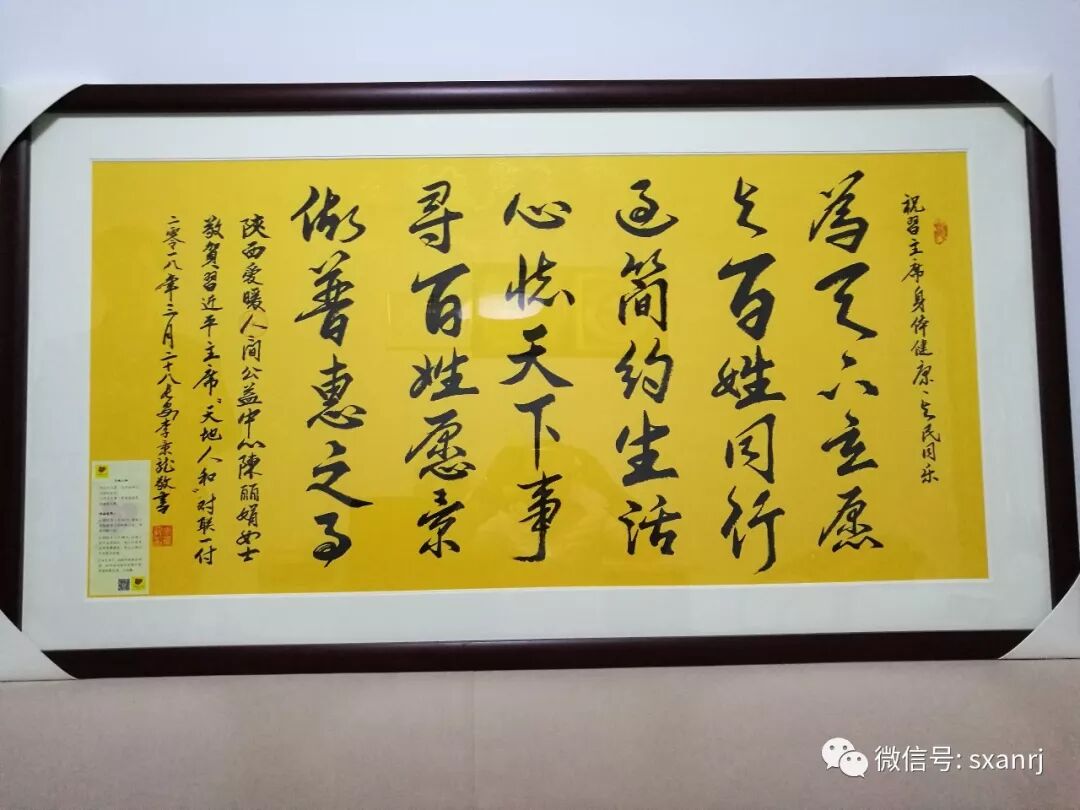 祝習主席身体健康、与民同乐
為天下立愿
与百姓同行
过簡约生活
心怀天下事
寻百姓愿景
做普惠之事
陝西爱暖人间公益中心陳丽娟女士
敬賀習近平主席“天地人和”对联一付
二零一八年三月二十八 李秉龙敬書
微信号: sxanrj